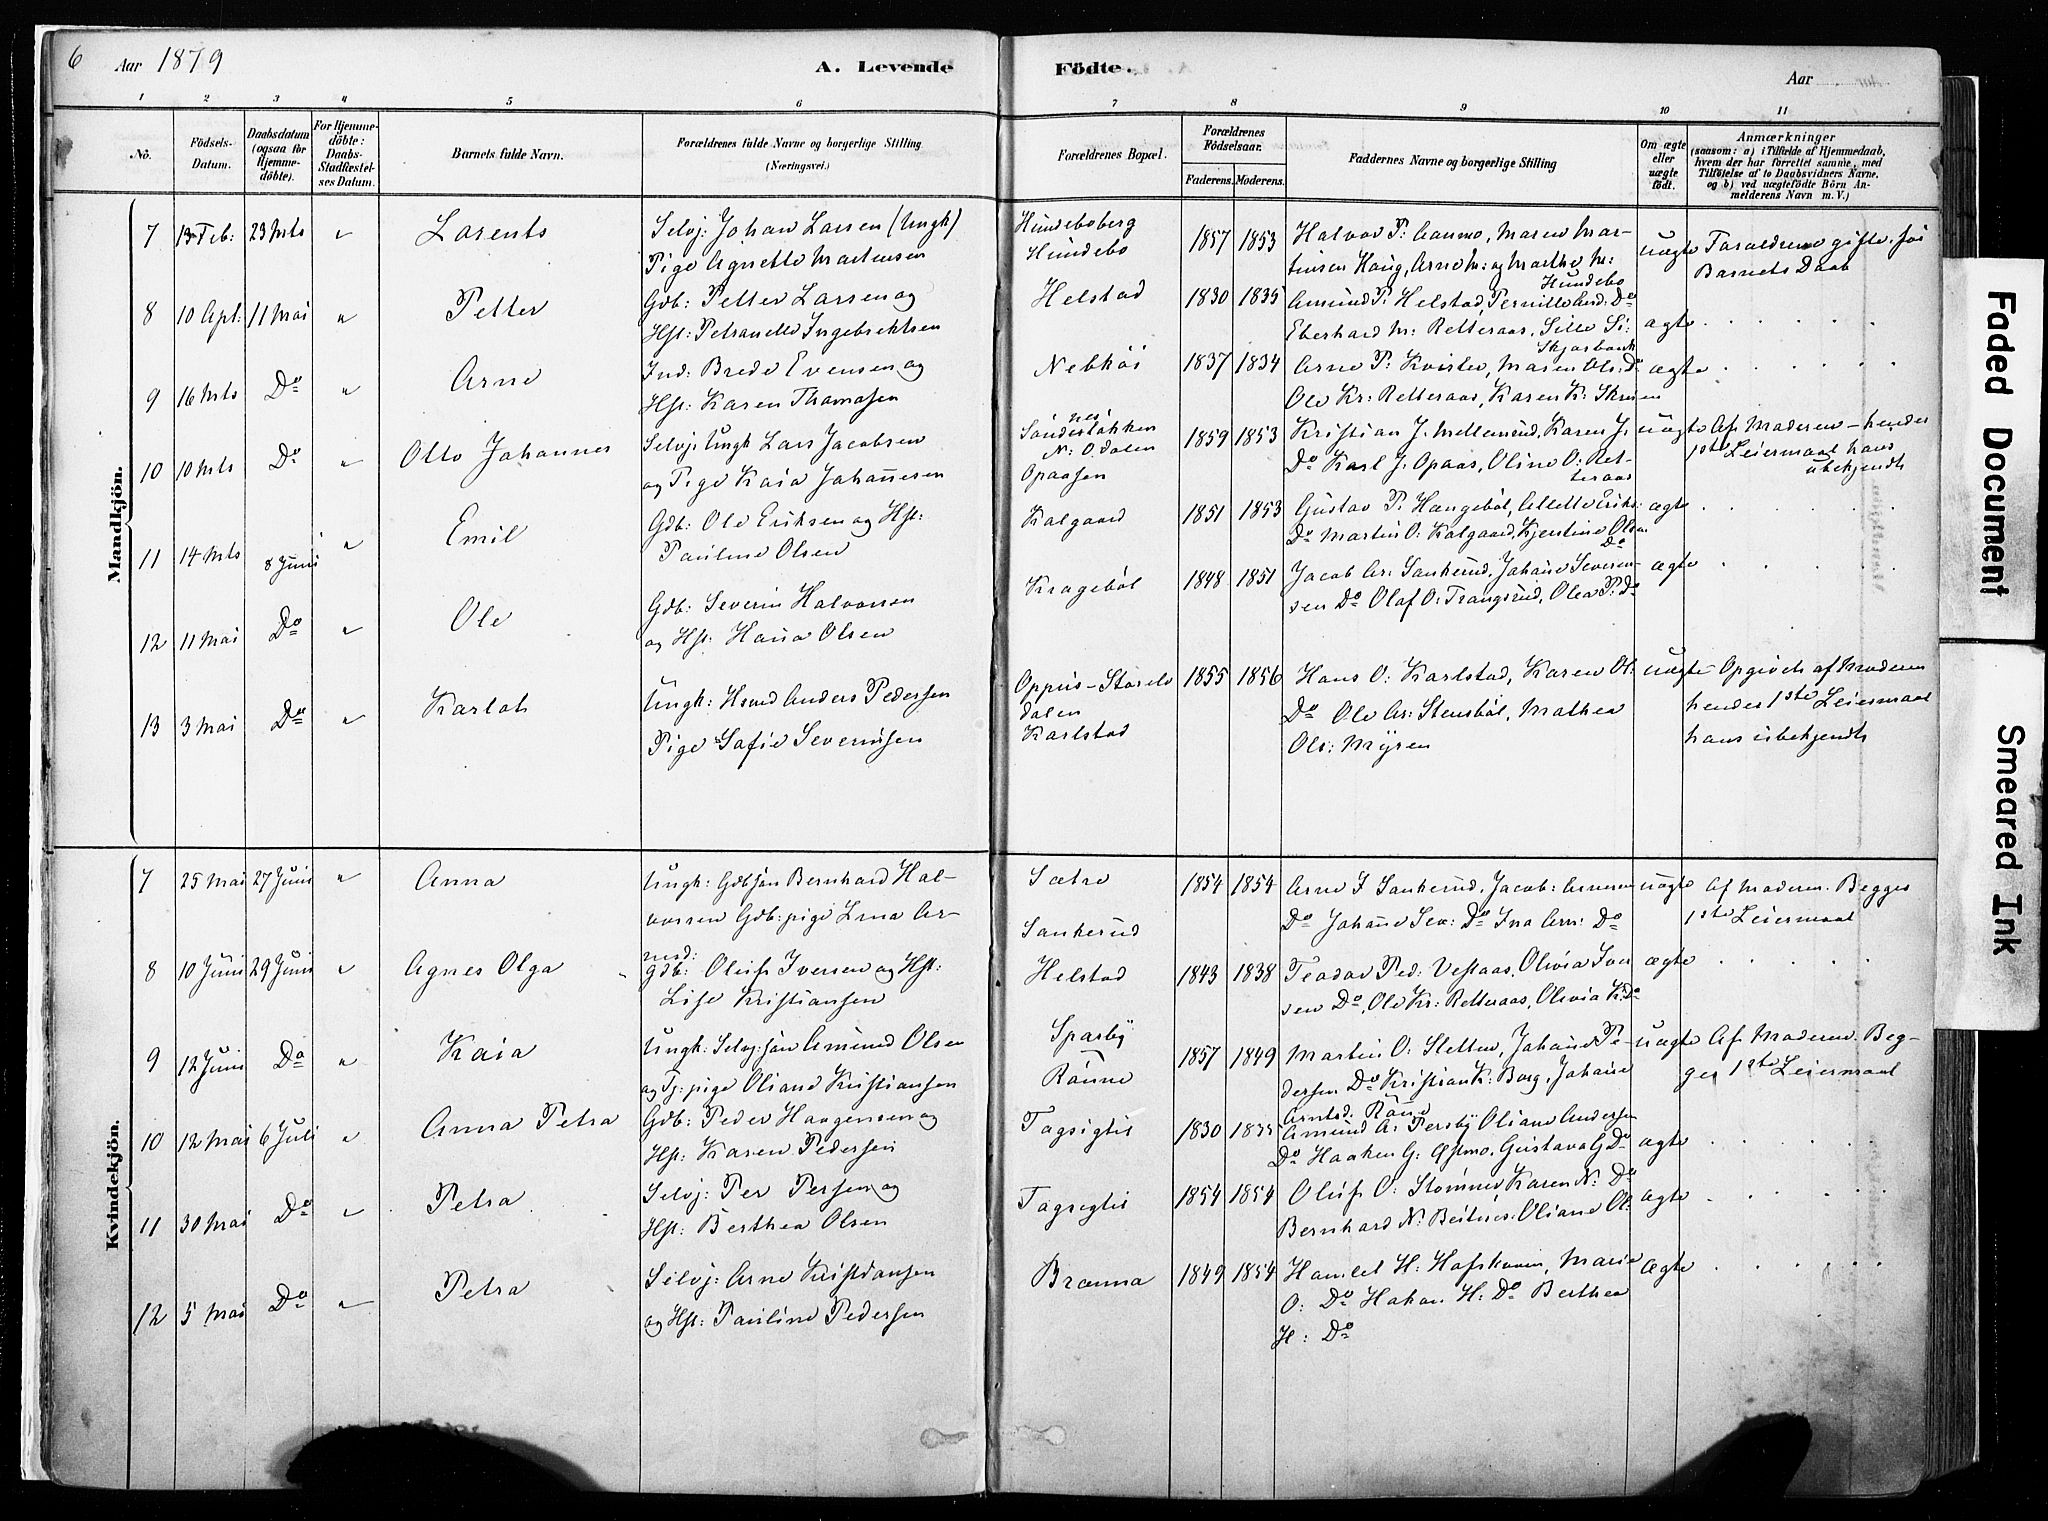 6 Aar 1879 A. Levende Födte. Aar
1 2 3 4 5 6 7 8 9 10 11
No.
Födsels-
Datum.
Daabsdatum
(ogsaa for
Hjemme-
döbte).
For Hjemme-
döbte:
Daabs-
Stadfæstel-
ses Datum.
Barnets fulde Navn.
Forældrenes fulde Navne og borgerlige Stilling
(Næringsvei.)
Forældrenes Bopæl.
Forældrenes
Födselsaar.
Faderens. Moderens.
Faddernes Navne og borgerlige Stilling
Om ægte
eller
uægte
födt.
Anmærkninger
(saasom: a) i Tilfælde af Hjemmedaab,
hvem der har forrettet samme, med
Tilföielse af to Daabsvidners Navne,
og b) ved uægtefödte Börn An-
melderens Navn m. V.)
Mandkjön.
7 13 Feb: 23 Mts " Larents
Selvj: Johan Larsen (Ungk)
Pige Agnette Martensen
Hundeboberg
Hundebo
1857 1853
Halvor P: Aanmo, Maren Mar-
tinsen Haug, Arne M: og Marthe M:
Hundebo
uægte Forældrene gifte, før
Barnets Daab
8 10 Apl: 11 Mai " Petter
Gdb: Petter Larsen og
Hst: Petranelle Ingebrektsen
Helstad 1830 1835
Amund P. Helstad, Pernille And: Do
Eberhard M: Retteraas, Sille Si:
Skjærbæk
ægte . . . . .
9 16 Mts Do " Arne
Ind: Brede Evensen og
Hst: Karen Thomasen
Nebkøi 1837 1834
Arne P: Kvister, Maren Ols: Do
Ole Kr: Retteraas, Karen K: Skruen
ægte . . . . .
10 10 Mts Do " Otto Johannes
Selvj: Ungk Lars Jacobsen
og Pige Kaia Johannesen
N: Odalen
Opaasen
1859 1853
Kristian J. Mellemrud, Karen J.
Do Karl J. Opaas, Oline O: Ret-
teraas
uægte Af Moderen - hendes
1ste Leiermaal hans
ubekjendt
11 14 Mts 8 Juni " Emil
Gdb: Ole Eriksen og Hst:
Pauline Olsen
Kalgaard 1851 1853
Gustav P. Haugebøl, Alette Eriks:
Do Martin O: Kalgaard, Kjerstine Olsen
Do
ægte . . . . .
12 11 Mai Do " Ole
Gdb: Severin Halvorsen
og Hst: Hana Olsen
Kragebøl 1848 1851
Jacob Ar: Sankerud, Johane Severin-
sen Do Olaf O: Trangsrud, Olea P: Do
ægte . . . . .
13 3 Mai Do " Karlot
Ungk: Hsmd Anders Pedersen
Pige Sofie Severinsen
Oppus - Storelv
dalen
Karlstad
1855 1856
Hans O: Karlstad, Karen Ol:
Do Ole Ar: Stensbøl, Mathea
Ols: Myren
uægte - Opgivet af Moderen
hendes 1ste Leiermaal
hans ubekjendt
Kvindekjön.
7 25 Mai 27 Juni " Anna
Ungk: Gdbsøn Bernhard Hal-
vorsen Gdb: pige Lena Ar-
nesd:
Sætre
Sankerud
1854 1854
Arne J Sankerud, Jacob: Arnesen
Do Johane Sev: Do Ina Arn: Do
uægte Af Moderen. Begges
1ste Leiermaal
8 10 Juni 29 Juni " Agnes Olga
Gdb: Oluf Iversen og Hst:
Lise Kristiansen
Helstad 1843 1838
Teodor Ped: Vestaas, Olivia Iver
sen Do, Ole Kr: Retteraas, Olivia K: Do
ægte . . . . .
9 12 Juni Do " Kaia
Ungk: Selvj: søn Amund Olsen
og Tj: pige Oliane Kristiansen
Sparby
Rønne
1857 1849
Martin O: Sletten, Johane Pe-
dersen Do Kristian K: Borg, Johane
Arntsd. Røne
uægte Af Moderen. Beg-
ges 1ste Leiermaal
10 12 Mai 6 Juli " Anna Petra
Gdb: Peder Haagensen og
Hst: Karen Pedersen
Tagsigtis 1830 1835
Amund A: Persby Oliane Andersen
Do Haaken G: Osmo, Gustava G Do
ægte . . . . .
11 30 Mai Do " Petra
Selvj: Per Persen og
Hst: Berthea Olsen
Tagsigtis 1854 1854
Oluf O: Stømner Karen N: Do
Bernhard N: Beitnes, Oliane Ol:
ægte . . . . .
12 5 Mai Do " Petra
Selvj: Arne Kristiansen
og Hst: Pauline Pedersen
Brænna 1849 1854
Hamlet H: Hofskoven, Marie
O: Do Hakon H: Do Berthea
H: Do
ægte . . . . .
Faded Document
Smeared Ink